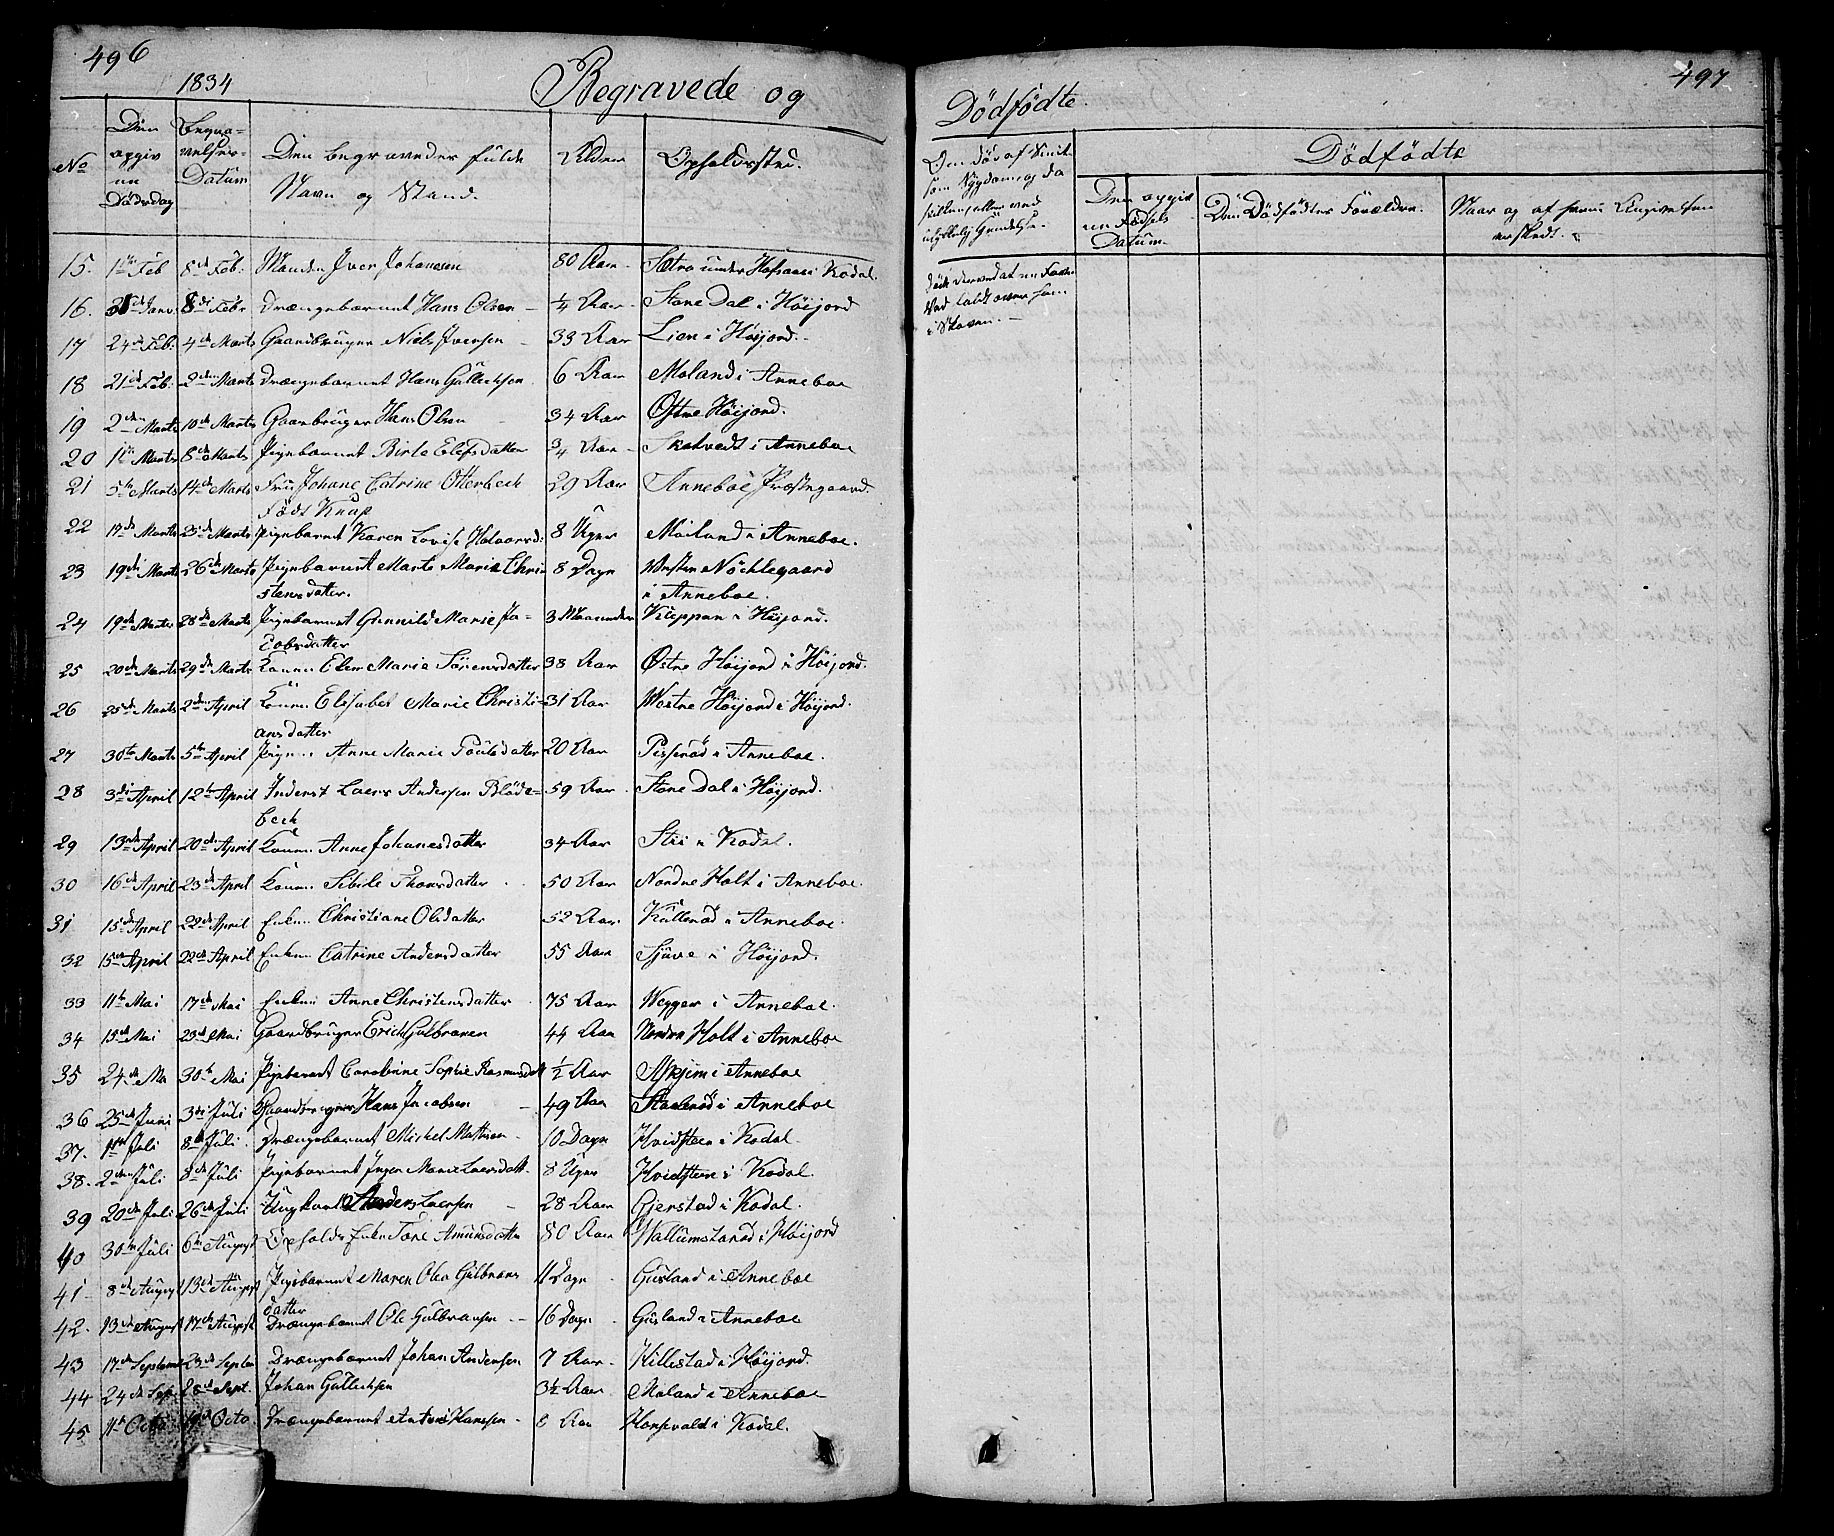 496
1834
Begravede og
No
Den opgivne Dödsdag
Begravelses-Datum
Den begravedes fulde Navn og Stand.
Alder
Opholdssted.
15. 1ste Feb 8de Feb: Manden Iver Johansen 80 Aar. Sætra under Hofsaas i Kodal.
16. 31 Janv. 8de Febr. Drængebarnet Hans Olsen ¼ Aar. Store Dal i Höijord
17 24de Feb: 4de Marts Gaardbruger Niels Iversen 33 Aar Lien i Höijord.
18 21de Feb: 2den Marts Drængebarnet Hans Gullichsen. 6 Aar Moland i Anneboe
19 2den Marts 10de Marts Gaardbruger Hans Olsen 34 Aar Östre Höijord.
20 1ste Marts 8de Marts Pigebarnet Birte Elefsdatter ¾ Aar Skatvedt i Anneboe
21 5te Marts 14de Marts Fru Johane Catrine Otterbech 29 Aar Anneboe Præstegaard.
Födt Knap
22 17de Marts 25de Marts Pigebarnet Karen Lovise Halvorsd: 8 Uger Moland i Anneboe.
23 19de Marts 26de Marts Pigebarnet Marte Marie Chri- 8 Dage Vestre Nöchlegaard
stensdatter. i Anneboe.
24 19de Marts 28de Marts Pigebarnet Gunnild Marie Ja- 3 Maaneder Kleppan i Höijord.
cobsdatter
25 20de Marts 29de Marts Konen Elen Marie Sörensdatter 38 Aar Östre Höijord i Höijord.
26 25de Marts 2den April Konen Elisabet Marie Christi- 31 Aar Westre Höijord i Höijord.
ansdatter
27 30te Marts 5te April Pigen Anne Marie Poulsdatter 20 Aar Pisserød i Anneboe.
28 3die April 12te April Inderst Laers Andersen Blöde- 59 Aar. Store Dal i Höijord.
bech
29 13de April 20de April Konen Anne Johanesdatter 34 Aar Stii i Kodal.
30 16de April 23de April Konen Sibile Thorsdatter 50 Aar Nordre Holt i Anneboe.
31 15de April 22de April Enken Christiane Olsdatter 52 Aar. Kullerød i Anneboe
32 15de April 22de April Enken Catrine Andersdatter 55 Aar Sjüve i Höijord.
33 11te Mai 17de Mai Enken Anne Christensdatter 75 Aar Wegger i Anneboe.
34 15de Mai 23de Mai Gaardbruger Erich Gulbransen 44 Aar Nordre Holt i Anneboe
35 24de Mai 30te Mai Pigebarnet Carolinne Sophie Rasmusdatt ½ Aar Askjem i Anneboe
36 25de Juni 3die Juli Gaardbruger Hans Jacobsen 49 Aar i Anneboe
37. 1ste Juli 8de Juli. Drængebarnet Michel Mathisen 10 Dage Hvidsteen i Kodal.
38. 2den Juli 8de Juli Pigebarnet Inger Marie Laersdatt. 8 Uger Hvidsteen i Kodal.
39 20de Juli 26de Juli Ungkarl Anders Laersen 28 Aar Gjerstad i Kodal.
40 30te Juli 6te August Opholds Enke Tore Amundsdatter 80 Aar Wallumstarød i Höijord
41 8de August 13de August Pigebarnet Maren Olea Gulbrans 11 Dage Gusland i Anneboe
datter
42. 13de August 17de August Drængebarnet Ole Gulbransen 16 Dage Gusland i Anneboe
43 17de Septem 23de Septem Drængebarnet Johan Andersen 7 Aar. Hillestad i Höijord.
44 24de Sep. 28de Sept. Johan Gullichsen 3½ Aar Moland i Anneboe
45 11te Octo 19de Octo. Drængebarnet Anton Hanssen 6 Aar i Kodal.
497
Dödfödte.
Dödfödte
Om död af Smitsom Sygdom og da hvilken, eller ved ulykkelig Hændelse.
Den opgivne Födsels Datum
Den Dödfödtes Forældre.
Naar og af hvem Angivelsen er skeet.
döde derved at en
Ved faldt over ham
i Skoven.